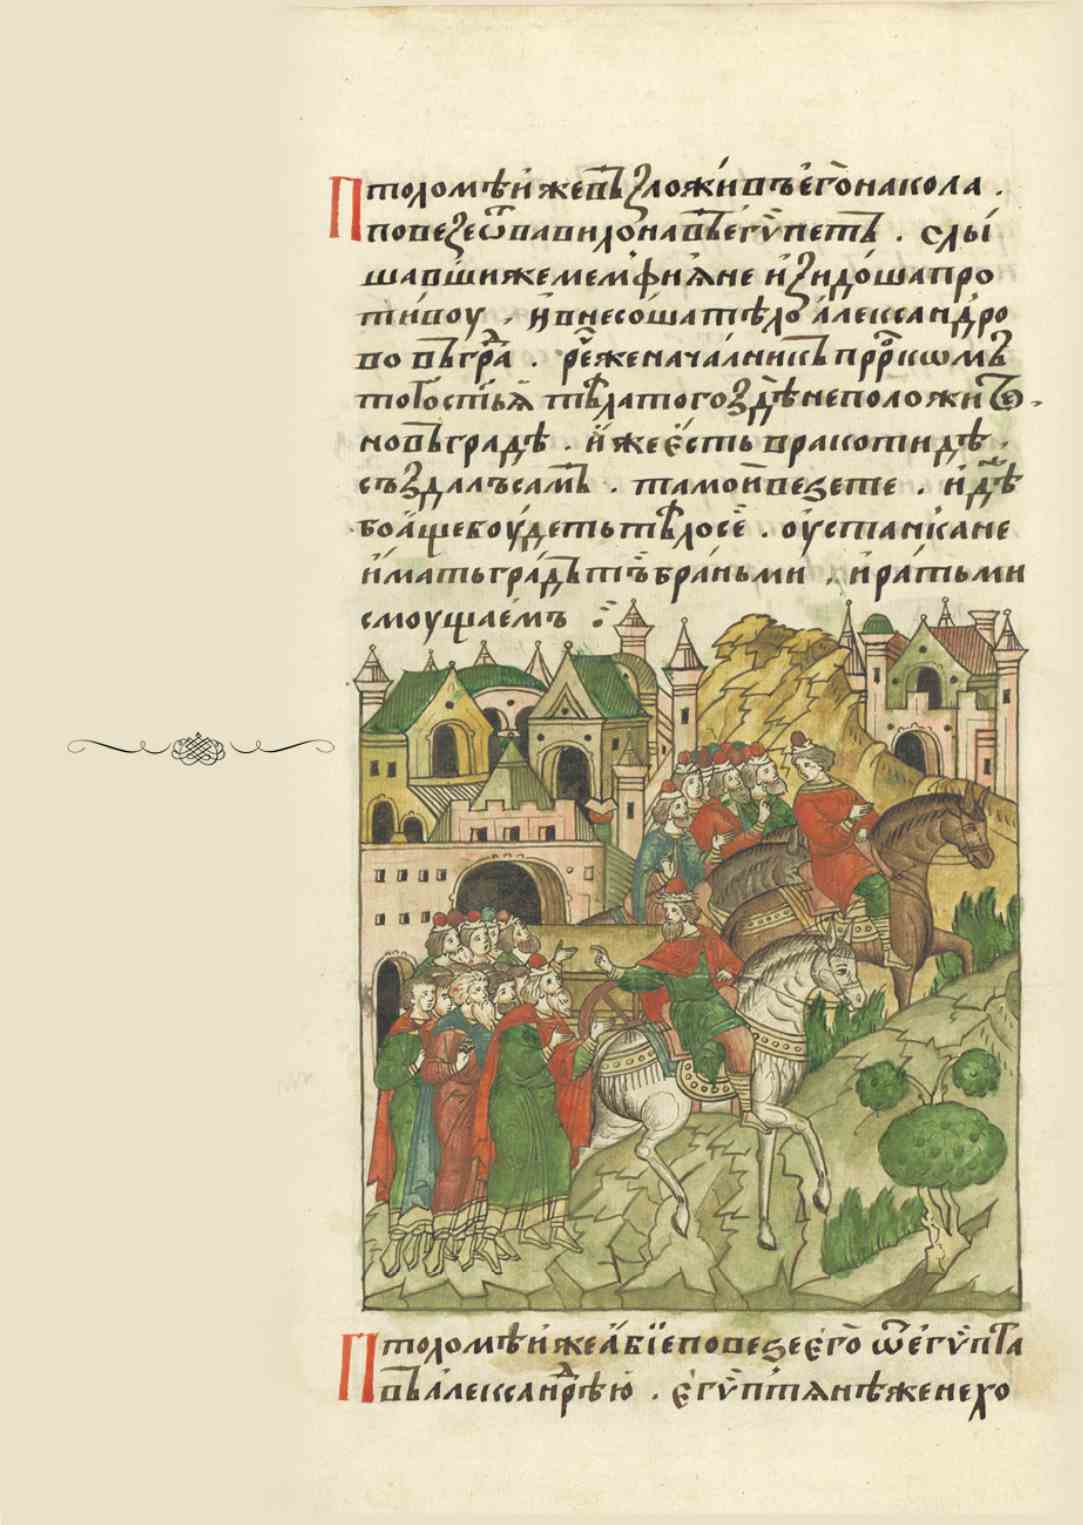 Птоломѣй же въꙁложивъ его на кола .
повеꙁе ѿ вавилона въ егѵпетъ . слы
шавши же мемфиꙗне иꙁидоша про
тивоу , и внесоша тѣло алеѯандро
во въ гра͏ⷣ . рече же началникъ пррⷪкѡмъ
то гостьꙗ тѣла того ꙁдѣ не положите .
но въ градѣ . иже есть в ракотидѣ .
съꙁдалъ самъ . тамо и веꙁете . идѣ
бо аще боудеть тѣло се . оустанка не
имать градъ тъ браньми , и ратьми
смоущаемъ :
Птоломѣй же абїе повеꙁе его ѿ егѵпта
въ алеѯанрⷣѣю . егѵптѧнѣ же не хо